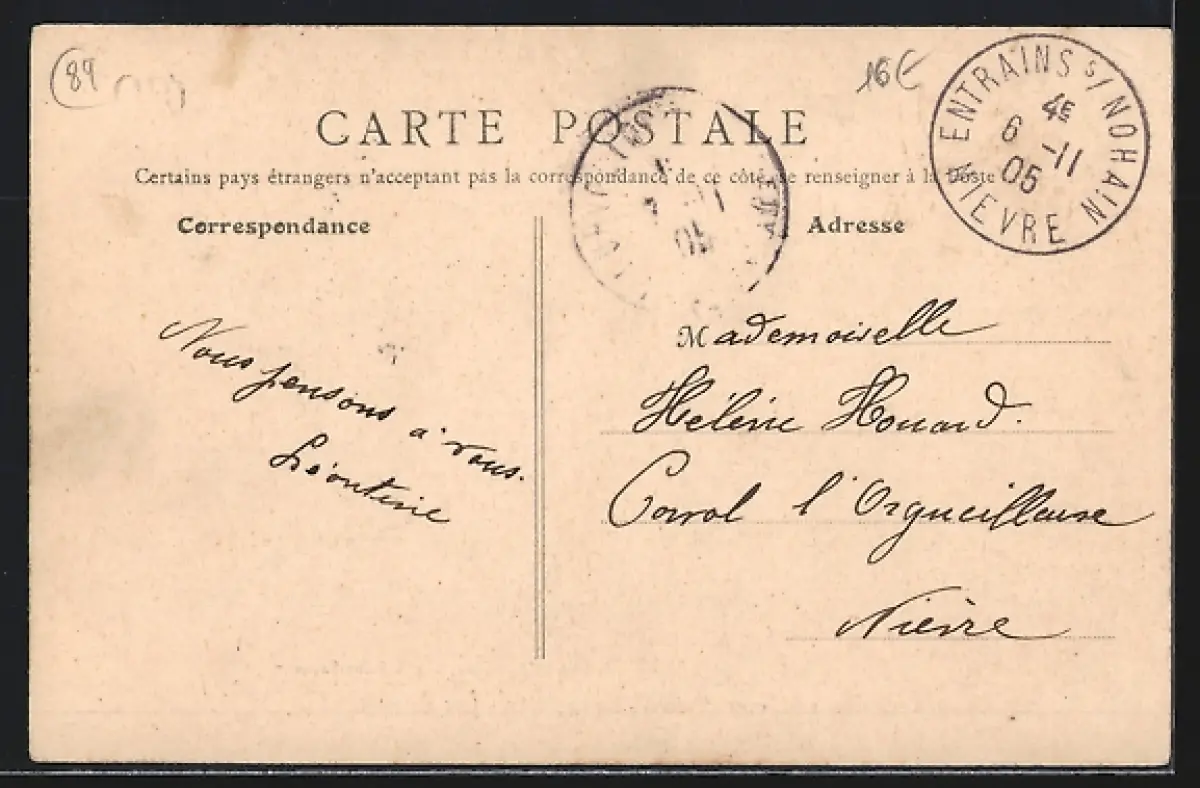 89
16€
ENTRAINS S/NOHAIN
4E
6 -11
05
NIEVRE
CARTE POSTALE
Certains pays étrangers n'acceptant pas la correspondance de ce côté, se renseigner à la Poste
Correspondance
Adresse
05
Nous pensons à vous.
Léontine
Mademoiselle
Hélène Houard.
Corvol l'Orgueilleuse
Nièvre